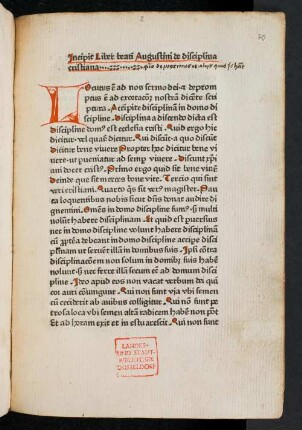 2
70
Incipit Liber beati Augustini de disciplina
cristiana
LOcutus ē ad nos sermo dei⁊ deprom
ptus ē ad exortacōȝ nostrā dicēte scri
ptura. Accipite disciplinā in domo di
scipline. Disciplina a discendo dicta est
Discipline dom⁹ est ecclesia cristi. Quid ergo hic
dicitur⁊vel quare dicitur. Qui dicūt⁊a quo dicūt̄
dicitur bene vivere Propter hoc dicitur bene vi
uere⁊ut perueniatur ad semp̱ viuere. Discunt xp̄i
ani docet cristus. Primo ergo quid sit bene viuē
Deinde que sit merces bene vite. Tercio qui sint
veri cristiani. Quarto q̄s sit ver⁹ magister. Pau
ca loquentibus nobis sicut dn̄s donat audire di
gnemini. Om̄es in domo discipline sum⁹ s̄ multi
nolūt habere disciplinam. Et quid est puersius
nec in domo discipline volunt habere disciplinā
cū debeant in domo discipline accipe disci
plinam ut seruēt illā in domibus suis. Ip̄i cōtra
disciplinā⁊em non solum in domib⁹ suis habē
nolunt⁊s̄ nec ferre illā secum ad domum disci
pline. Ideo apud eos non vacat verbum dei qui
cor auri cōiungunt. Qui non sunt via ubi semen
cū ceciderit ab auibus colligitur. Qui nō sunt pe
trosa loca vbi semen altā radicem habē non pōt
Et ad horam exit et in estu arescit. Qui non sunt
LANDES-
UND STADT-
BIBLIOTHEK
DÜSSELDORF